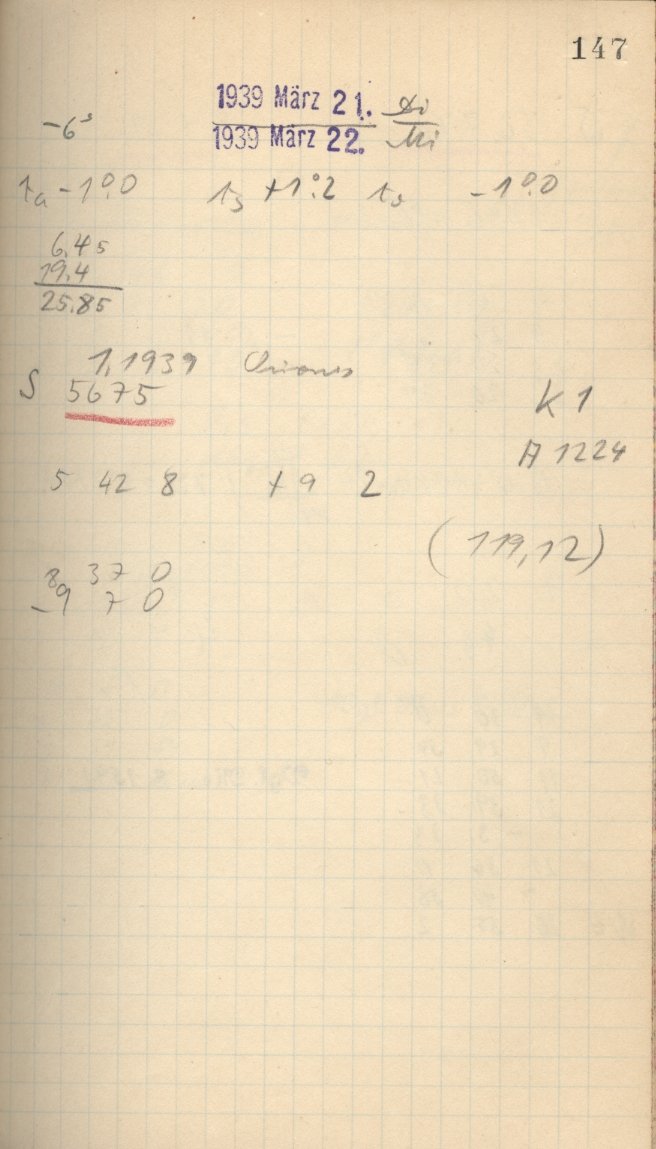 147
1939 März 21. Di
-6ˢ
1939 März 22. Mi
tₐ -1°.0 t₃ +1°.2 -1°.0
6,45
19,4
25,85
1,1939 Orionis
S 5675
K 1
A 1224
5 42 8 +9 2
(119,12)
8 37 0
-9 7 0